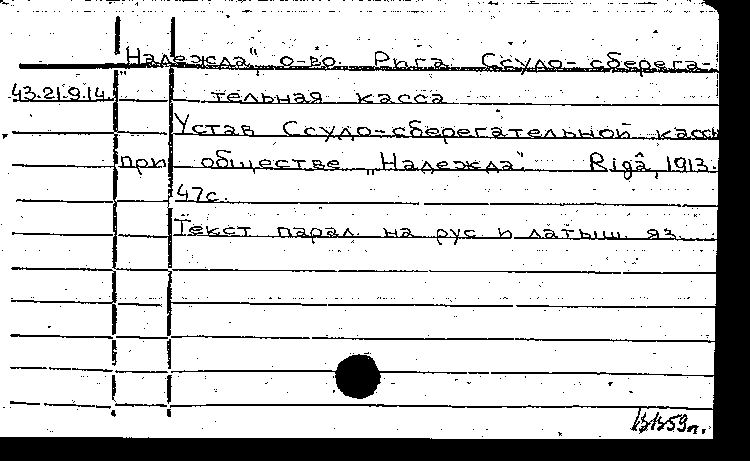 „Надежда“, о-во. Рига. Ссудо-сберега-
43.21.9.14. тельная касса
Устав Ссудо-сберегательной кассы
при обществе „Надежда“. Rigâ, 1913.
47с.
Текст парал. на рус и латыш. яз.